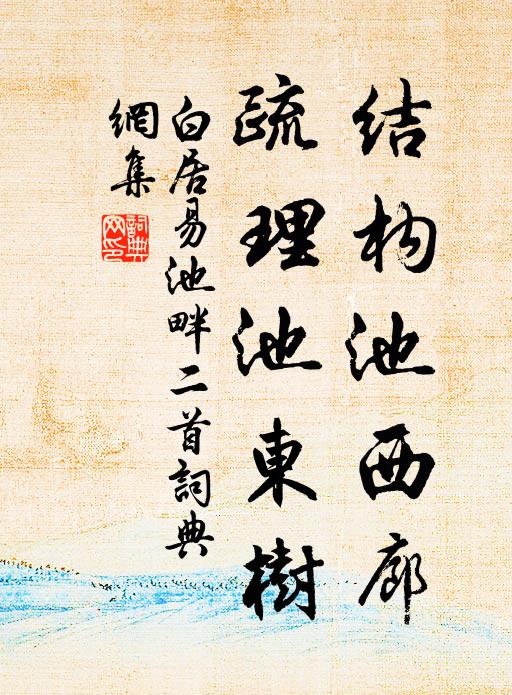 结构池西廊
疏理池東樹
白居易池畔二首詞典
網集
詞典
网印